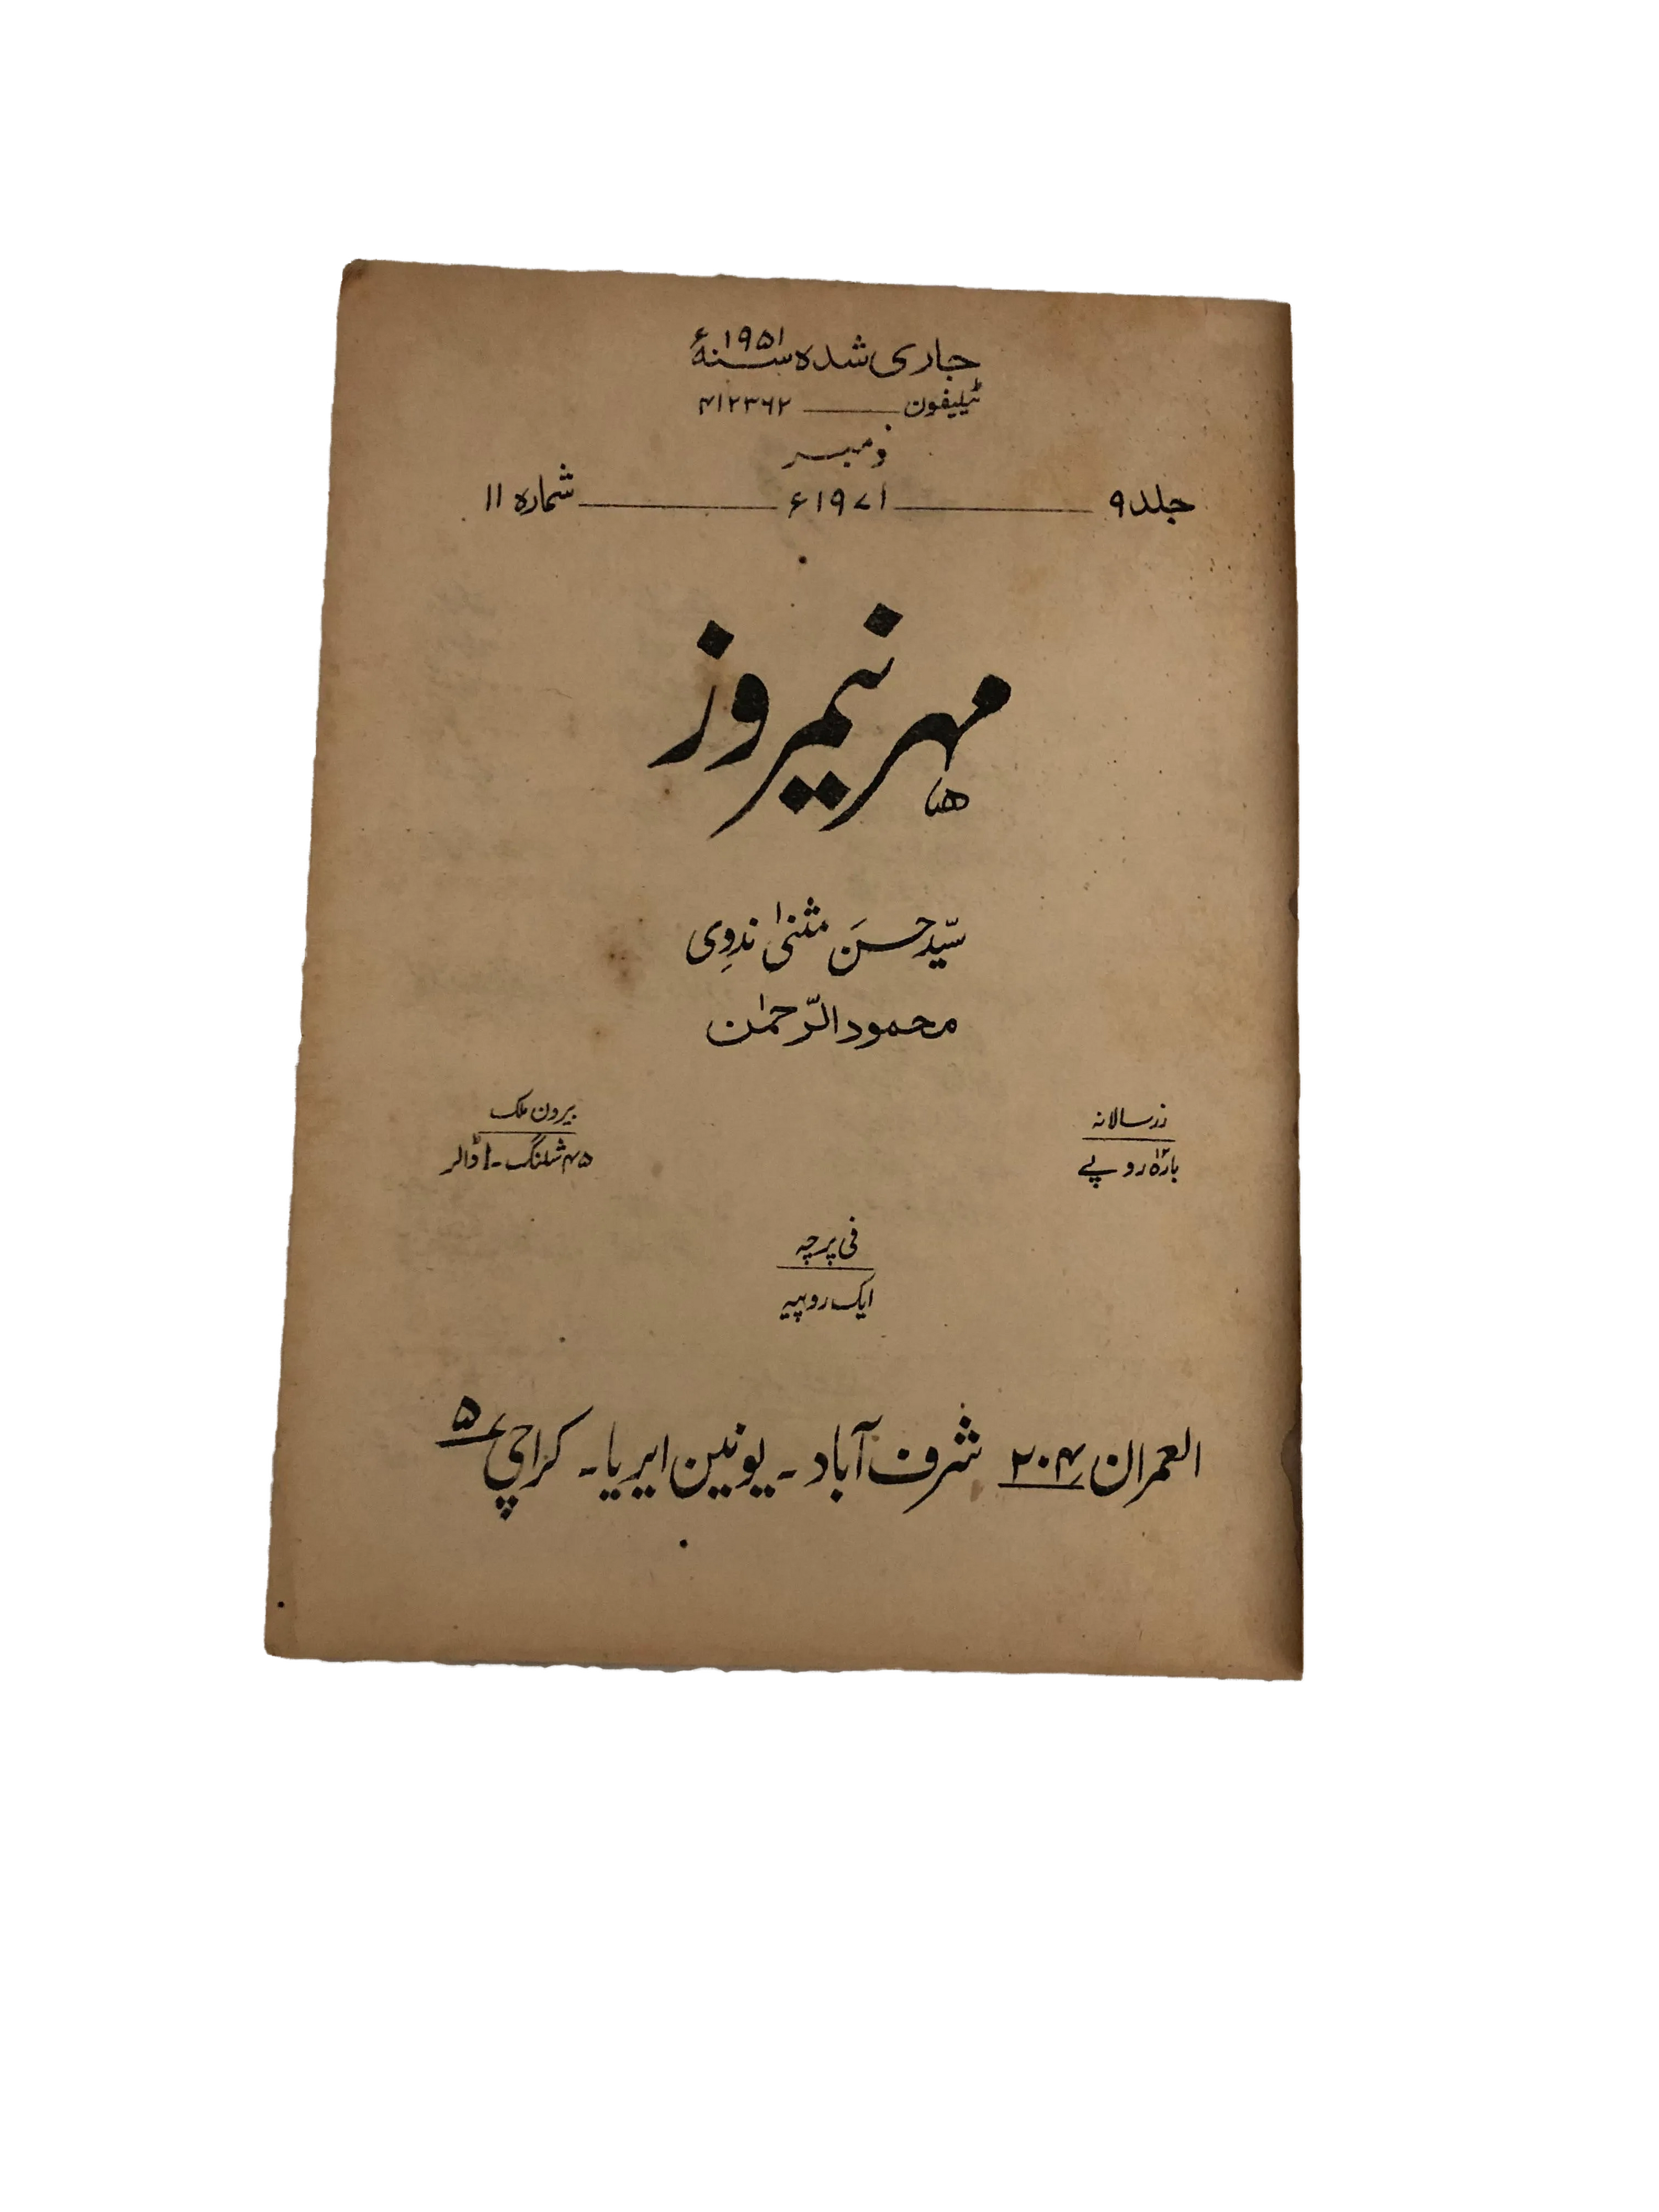 جاری شدہ سنہ ۱۹۵۱ء
ٹیلیفون ـــــــ ۴۱۲۳۶۲
نومبر
جلد ۹ ـــــــ ۱۹۷۱ء ـــــــ شمارہ ۱۱
مہر نیمروز
سیّد حسن مثنیٰ ندوی
محمود الرّحمٰن
زر سالانہ
بارہ ۱۲ روپے
بیرون ملک
۴۵ شلنگ - ۱ ڈالر
فی پرچہ
ایک روپیہ
العمران ۲۰۴ شرف آباد - یونین ایریا - کراچی ۵